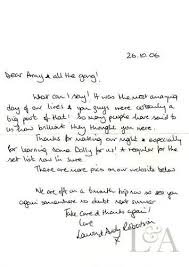 26.10.06
Dear Amy & all the gang!
What can I say! It was the most amazing
day of our lives & you guys were certainly a
big part of that! So many people have said to
us how brilliant they thought you were.
Thanks for making our night & especially
for learning some Dolly for us! A regular for the
set list now I'm sure.
There are more pics on our website below
We are off on a 3 month trip now so see you
again somewhere no doubt next summer
Take care & thanks again!
Love
Laura & Andy
x